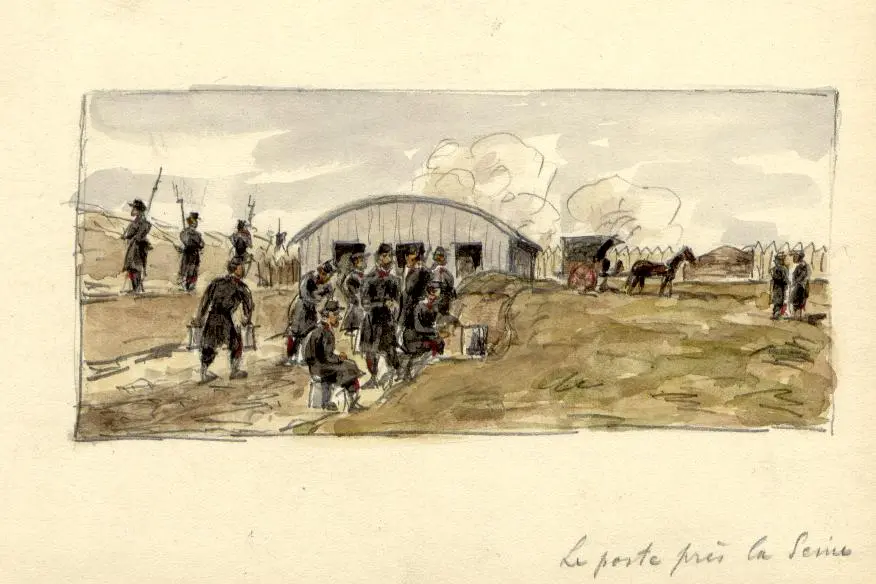 Le poste près la Seine